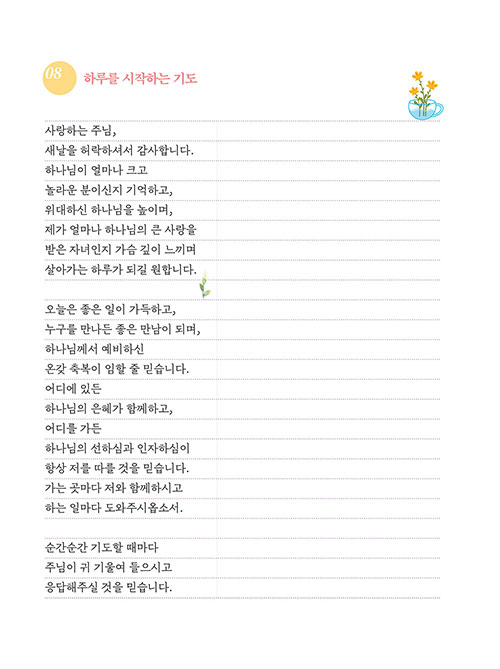 08 하루를 시작하는 기도
사랑하는 주님,
새날을 허락하셔서 감사합니다.
하나님이 얼마나 크고
놀라운 분이신지 기억하고,
위대하신 하나님을 높이며,
제가 얼마나 하나님의 큰 사랑을
받은 자녀인지 가슴 깊이 느끼며
살아가는 하루가 되길 원합니다.
오늘은 좋은 일이 가득하고,
누구를 만나든 좋은 만남이 되며,
하나님께서 예비하신
온갖 축복이 임할 줄 믿습니다.
어디에 있든
하나님의 은혜가 함께하고,
어디를 가든
하나님의 선하심과 인자하심이
항상 저를 따를 것을 믿습니다.
가는 곳마다 저와 함께하시고
하는 일마다 도와주시옵소서.
순간순간 기도할 때마다
주님이 귀 기울여 들으시고
응답해주실 것을 믿습니다.